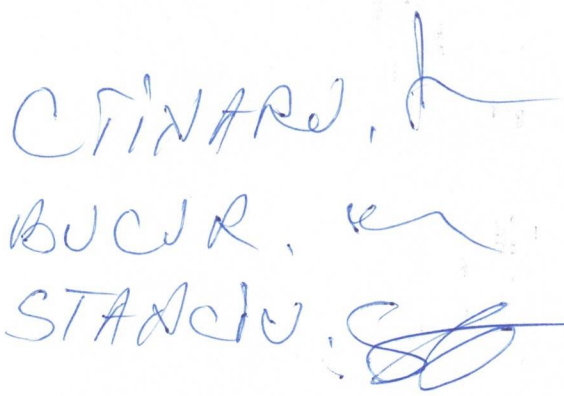 CTINARU.
BUCUR.
STANCIU.